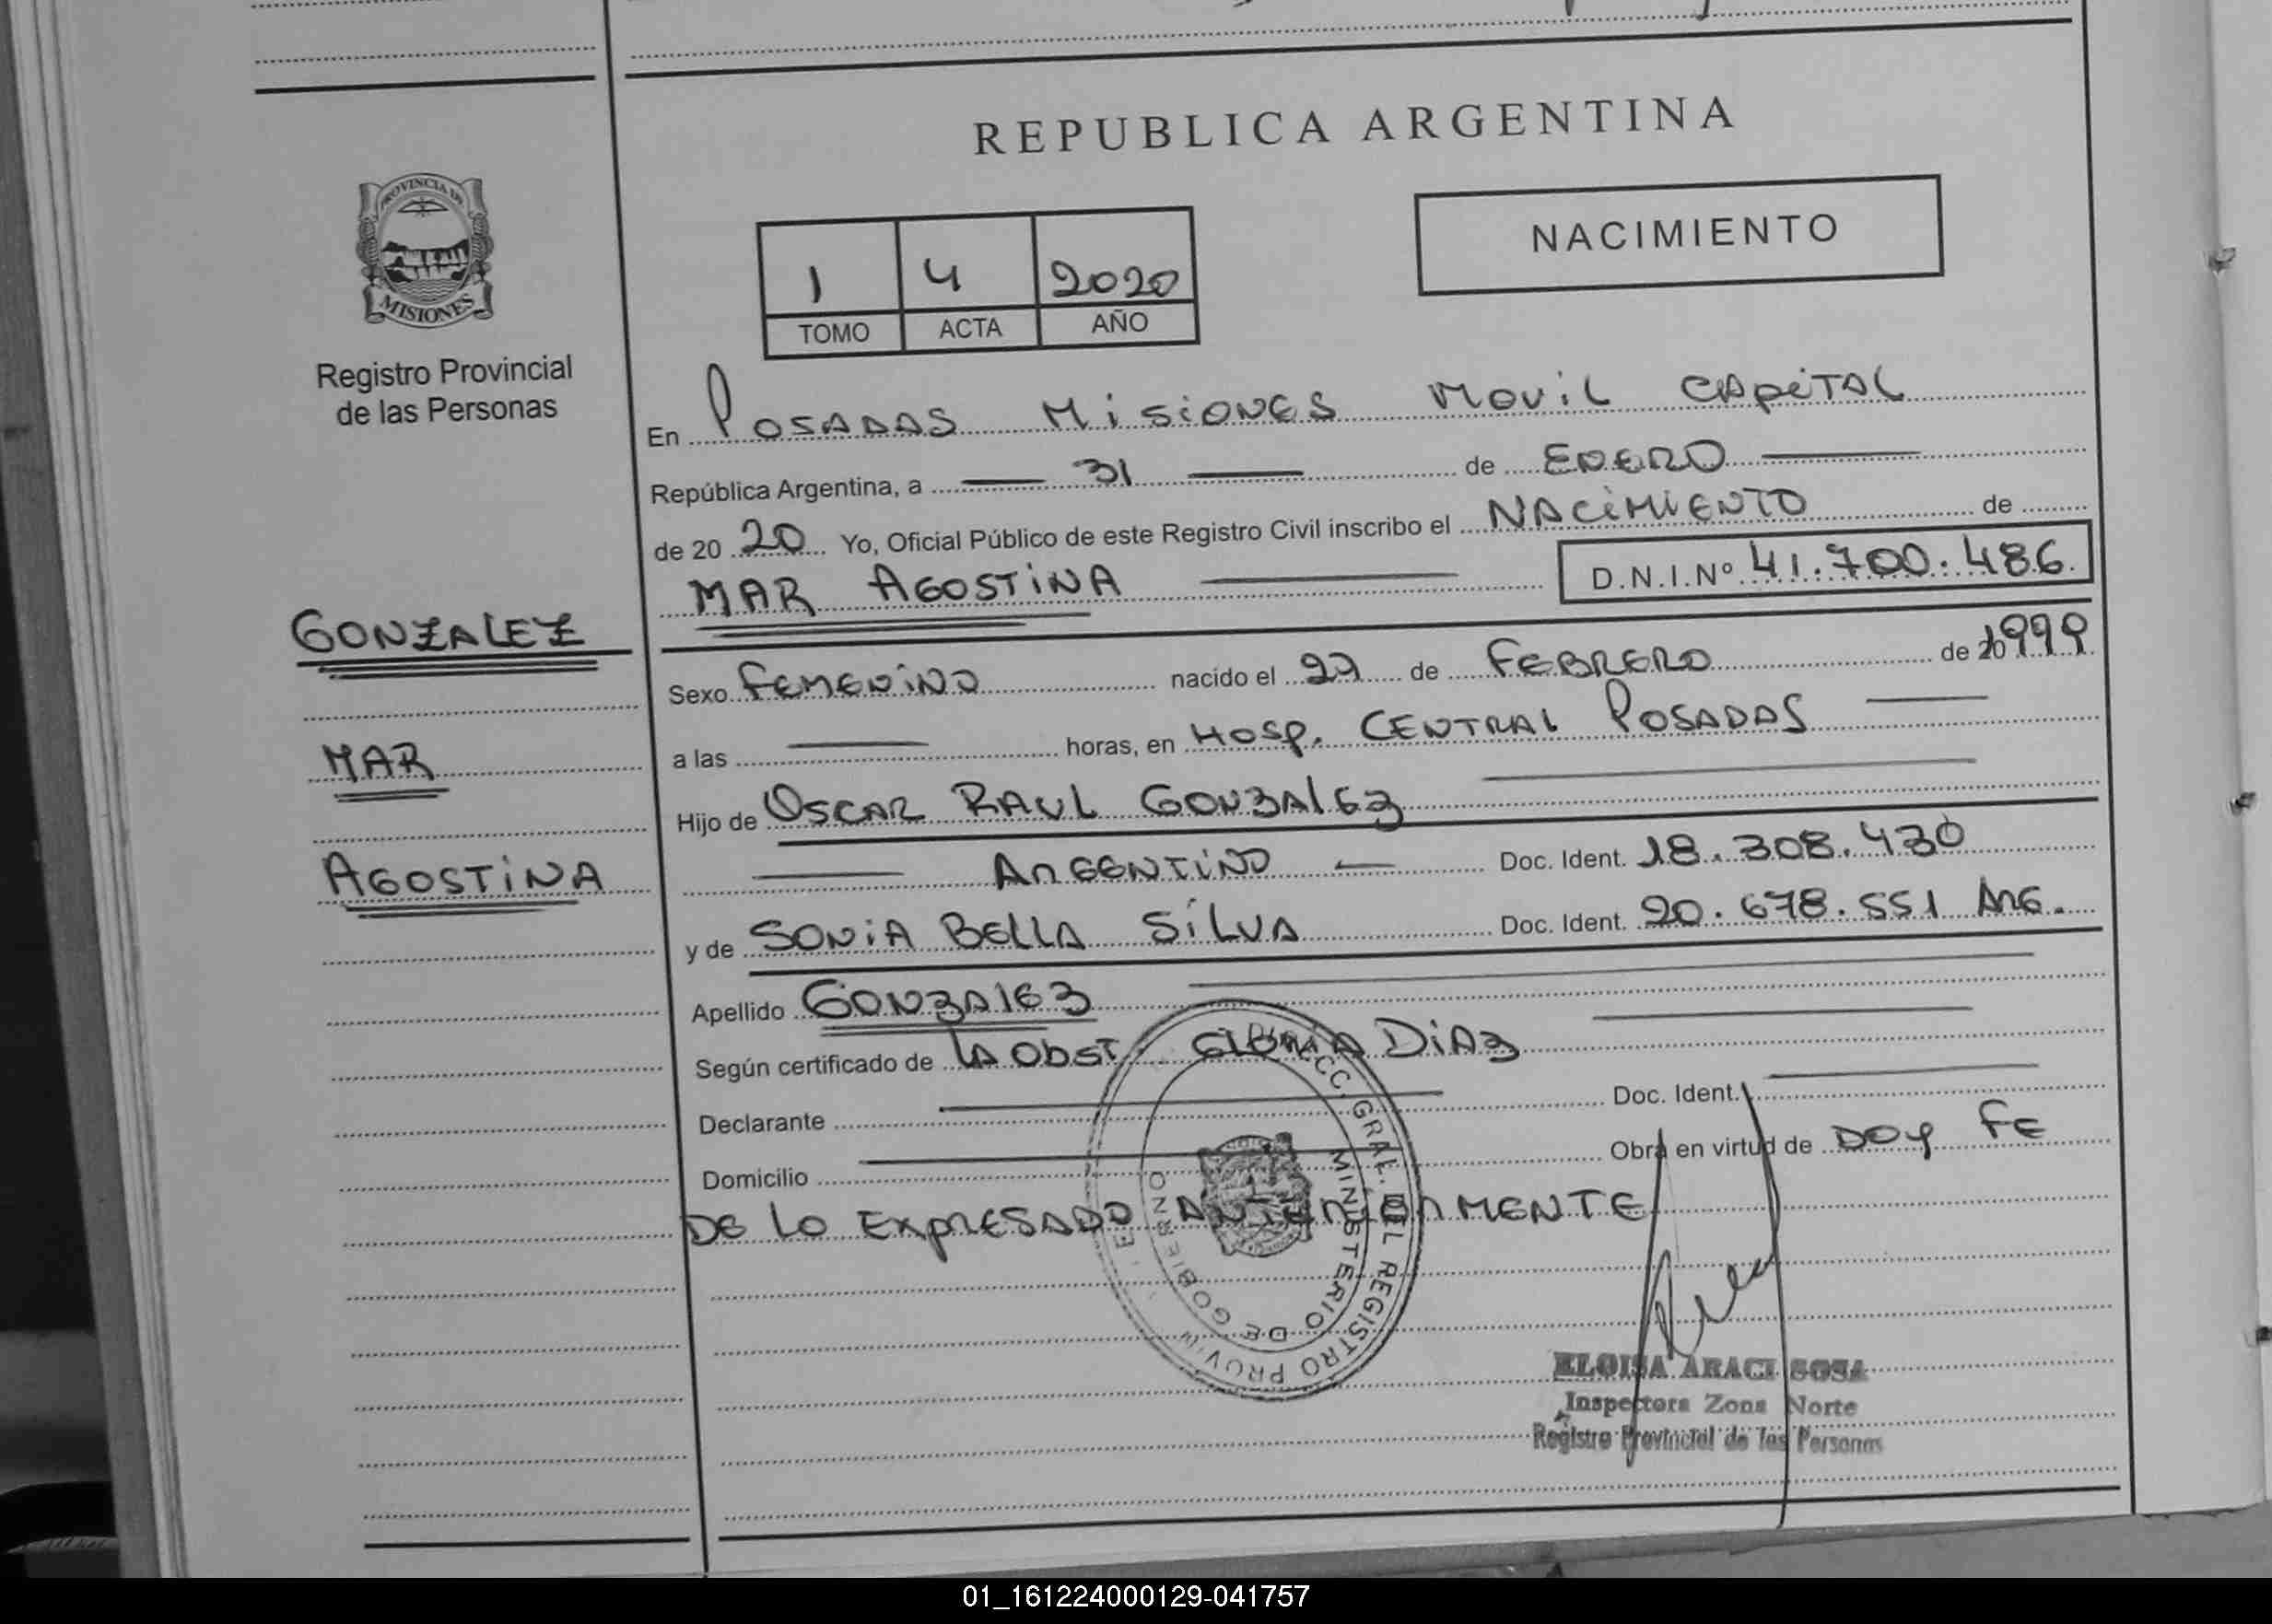 REPUBLICA ARGENTINA
PROVINCIA DE
MISIONES
Registro Provincial
de las Personas
NACIMIENTO
1 4 2020
TOMO ACTA AÑO
En POSADAS MISIONES MOVIL CAPITAL
República Argentina, a 31 de ENERO
de 20 20 Yo, Oficial Público de este Registro Civil inscribo el NACIMIENTO de
MAR AGOSTINA D.N.I.Nº 41.700.486
GONZALEZ
MAR
AGOSTINA
Sexo FEMENINO nacido el 27 de FEBRERO de 1999
a las horas, en HOSP. CENTRAL POSADAS
Hijo de OSCAR RAUL GONZALEZ
ARGENTINO Doc. Ident. 18.308.430
y de SONIA BELLA SILVA Doc. Ident. 20.678.551 ARG.
Apellido GONZALEZ
Según certificado de LA OBST. GLORIA DIAZ
Declarante Doc. Ident.
Domicilio Obra en virtud de DOY FE
DE LO EXPRESADO ANTERIORMENTE
DIRECC. GRAL. DEL REGISTRO PROV.
MINISTERIO DE GOBIERNO
ELOISA ARACI SOSA
Inspectora Zona Norte
Registro Provincial de las Personas
01_161224000129-041757